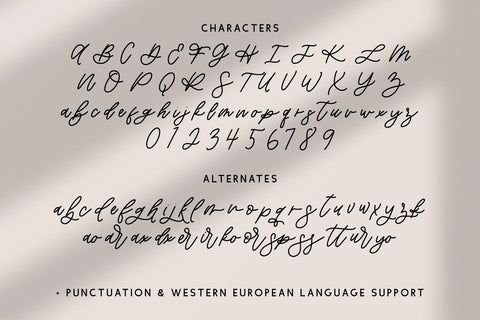 CHARACTERS
A B C D E F G H I J K L M
N O P Q R S T U V W X Y Z
a b c d e f g h i j k l m n o p q r s t u v w x y z
0 1 2 3 4 5 6 7 8 9
ALTERNATES
a b c d e f g h i j k l m n o p q r s t u v w x y z
ao ar ax dx er ir ko or sp ss tt ur yo
+ PUNCTUATION & WESTERN EUROPEAN LANGUAGE SUPPORT